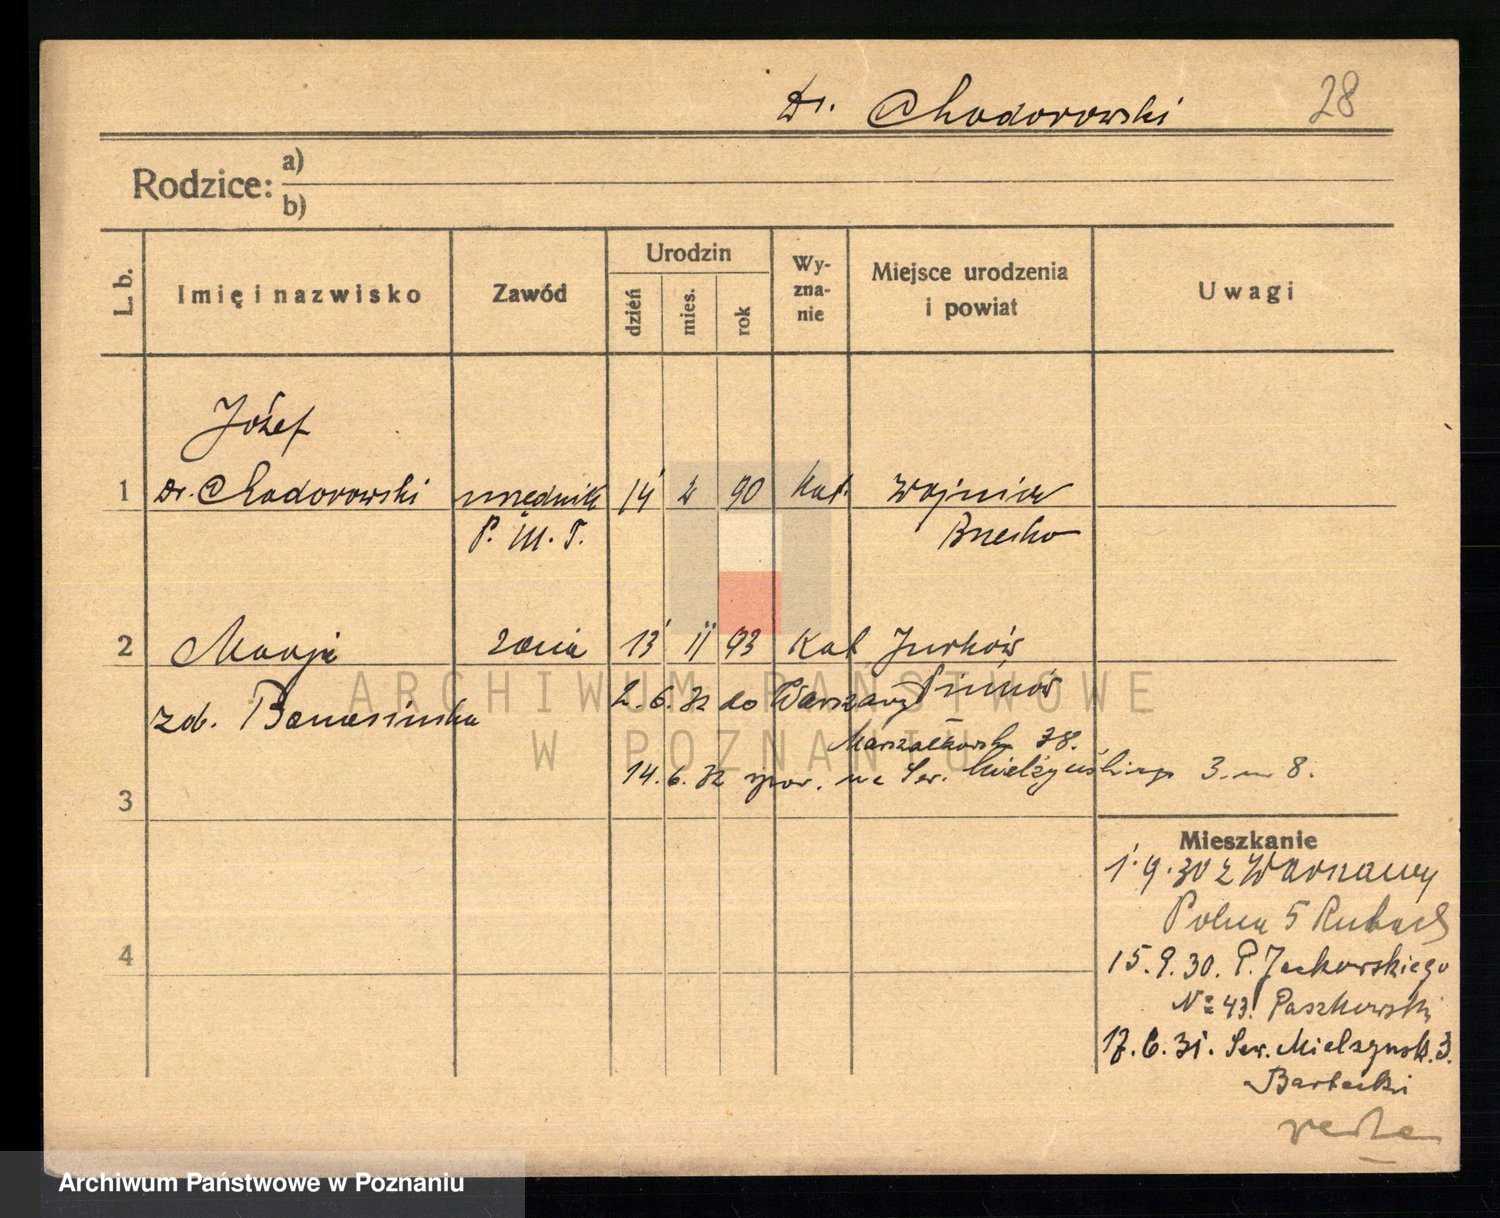 Dr. Chodorowski 28
Rodzice: a)
b)
L. b. Imię i nazwisko Zawód Urodzin dzień mies. rok Wy-zna-nie Miejsce urodzenia i powiat Uwagi
Józef
1 Dr. Chodorowski urzędnik 14 2 90 Kat. Wojnicz
P. W. T. Brzesko
2 Marja żona 13 II 93 Kat Jurków
ARCHIWUM PAŃSTWOWE
2. 6. 32 do Warszawy
zdb.
W POZNANIU
Marszałkowsk 78.
14. 6. 32 na Sew. Mielżyńskiego 3. m 8.
3
Mieszkanie
1. 9. 30 z Warszawy
Polna 5
4
15. 9. 30. P. Jackowskiego
No 43. Paszkowski
17. 6. 31. Sew. Mielżyńsk. 3.
Bartecki
Archiwum Państwowe w Poznaniu